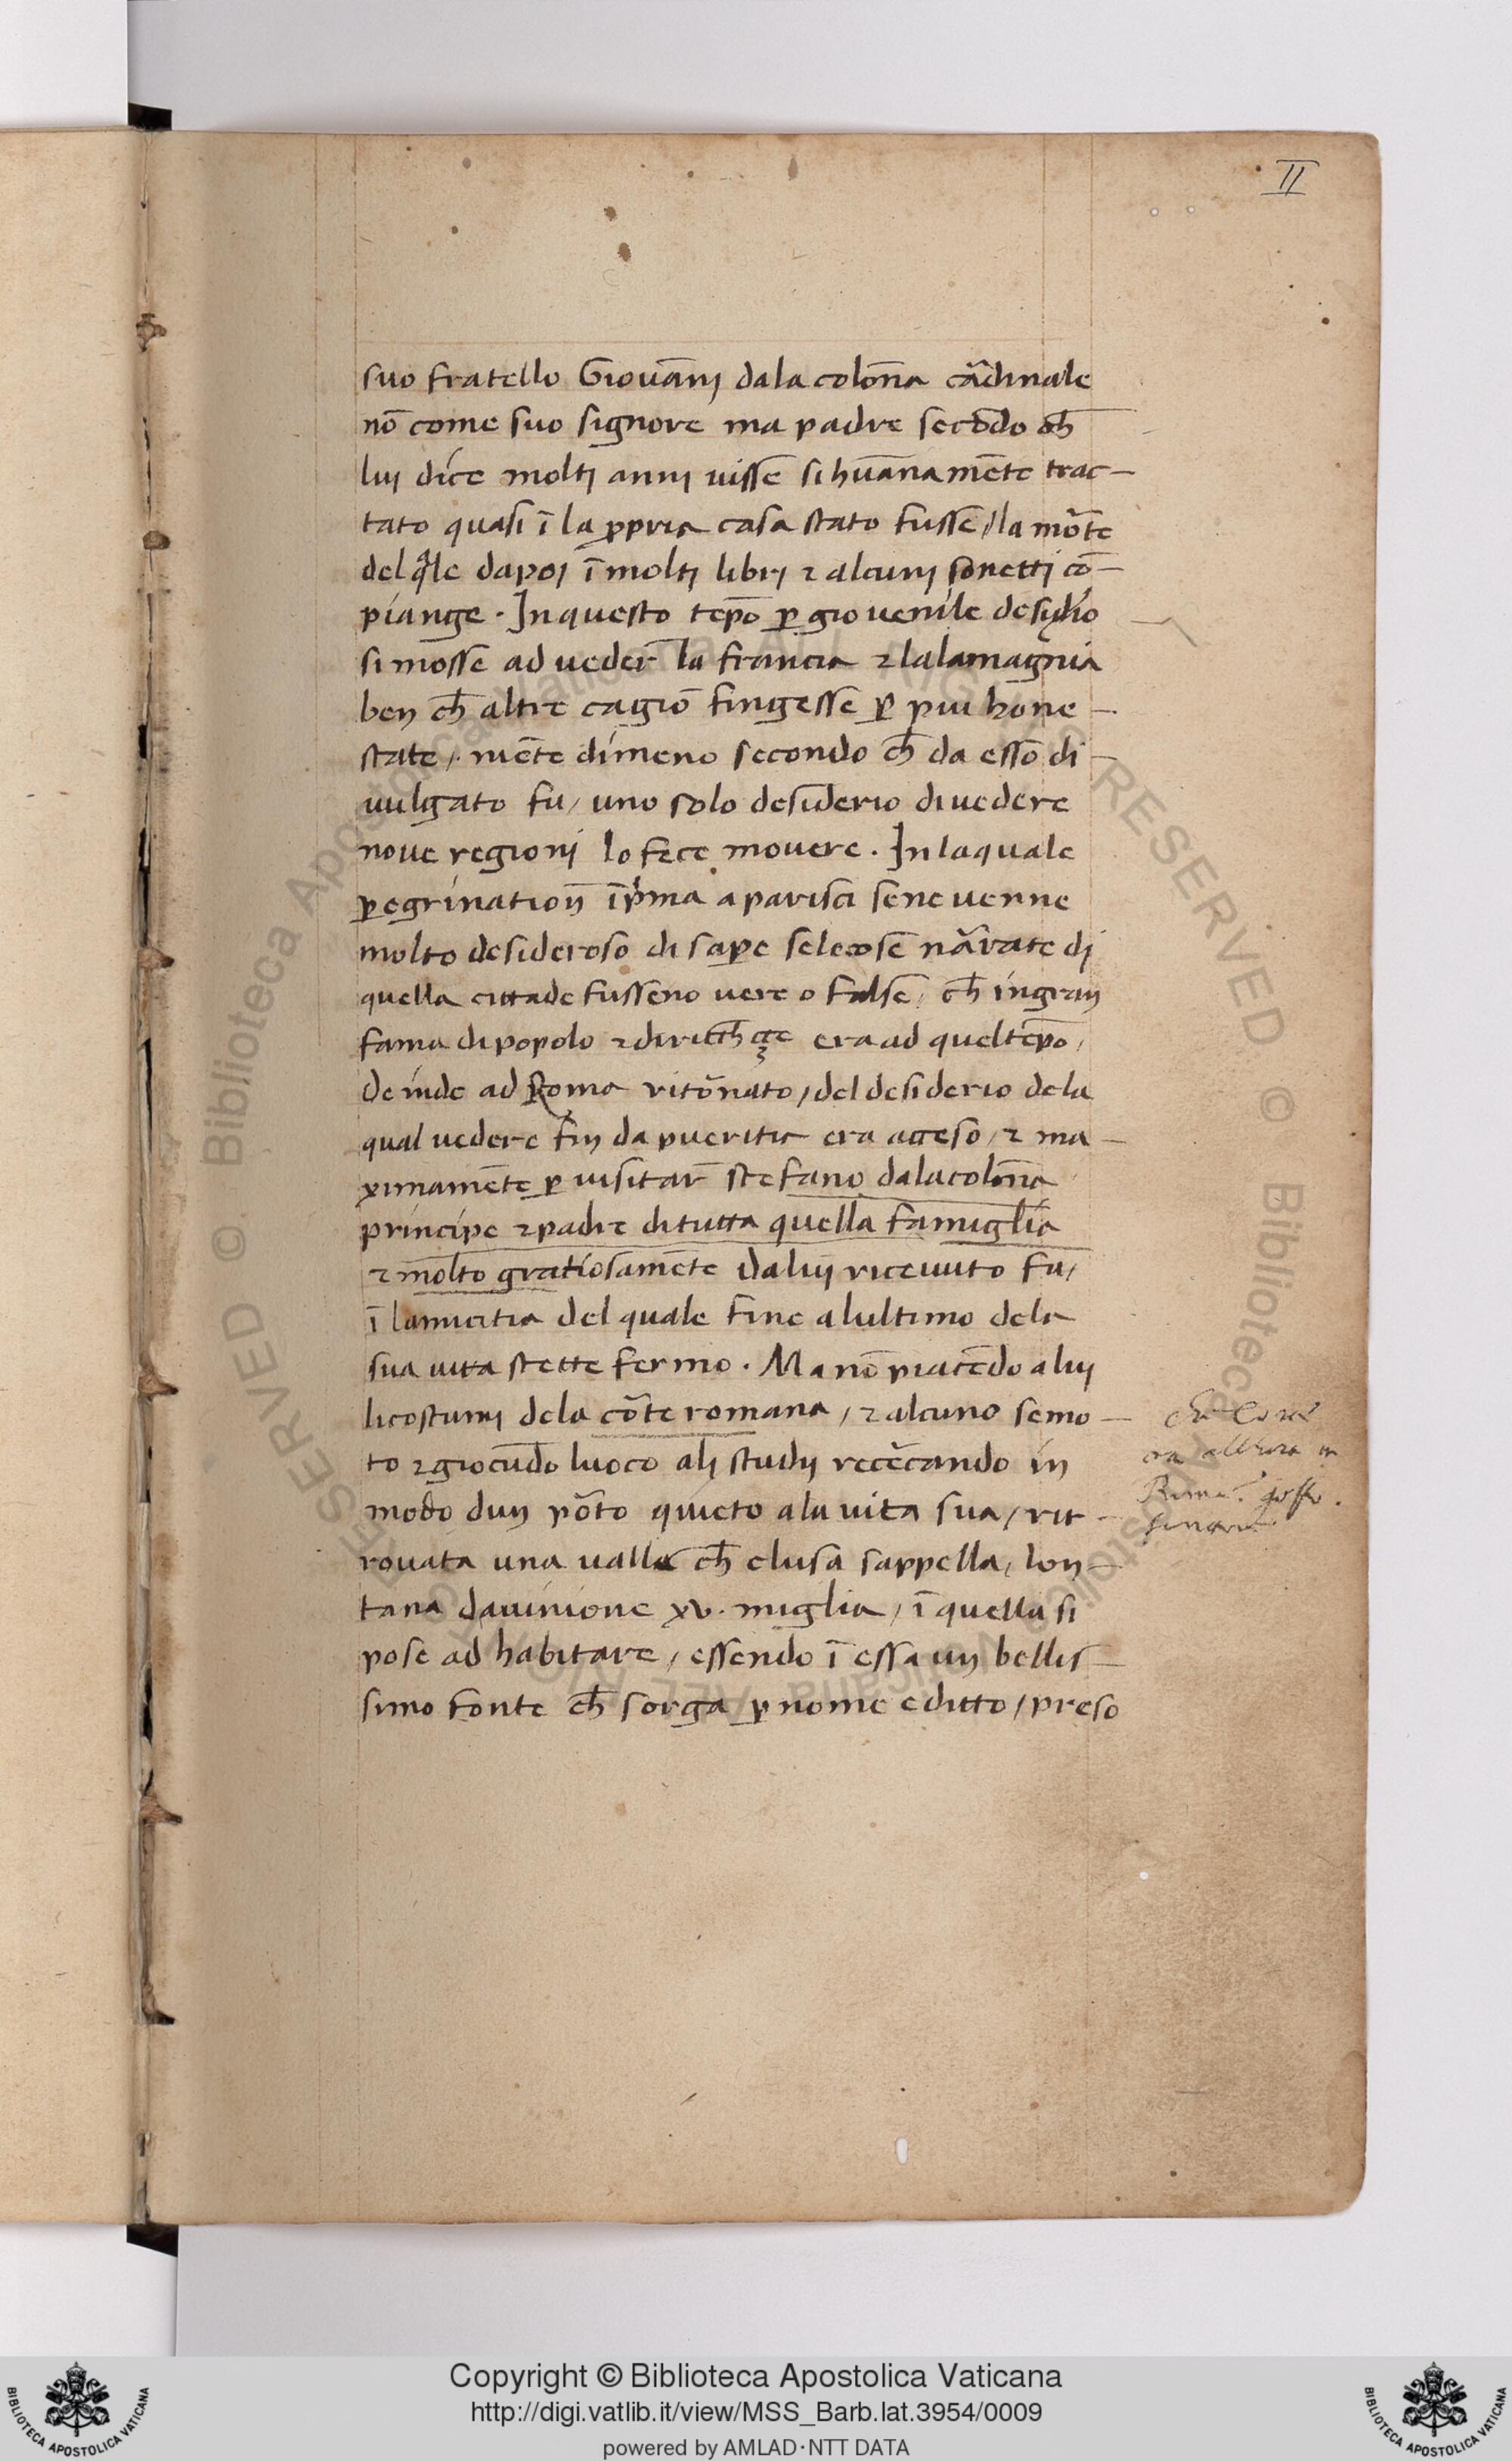 II
suo fratello Giouãnj dala colon̄a cãrdinale
nõ come suo signore ma padre secõdo ch̄
luj dice molti annj uisse si hum̄anamẽte trac-
tato quasi ĩ la ꝓpria casa stato fusse / la mõte
del q̃le dapoj ĩ molti librj ⁊ alcunj sonetti cõ-
piange. In questo tẽpo ꝑ giouenile desyderio
si mosse ad ueder̄ la francia ⁊ lalamagnia
ben ch̄ altre cagiõ fingesse ꝑ piu hone-
state / niẽte dimeno secondo ch̄ da esso di-
uulgato fu / uno solo desiderio di uedere
noue regionj lo fece mouere. In la quale
ꝑegrination̄ ĩ pͥma a parisci se ne uenne
molto desideroso di saꝑe se le cose nãrate di
quella cittade fusseno uere o false / ch̄ in gran
fama di popolo ⁊ di ricch̄eçe era ad quel tẽpo /
De inde ad Roma ritõnato / del desiderio dela
qual uedere fin da pueritia era acceso / ⁊ ma-
ximamẽte ꝑ uisitar̄ stefano dala colon̄a
principe ⁊ padre di tutta quella famiglia
⁊ molto gratiosamẽte da luj riceuuto fu /
ĩ lamicitia del quale fine alultimo dela
sua uita stette fermo. Ma nõ piacẽdo a luj
li costumj dela cõte romana / ⁊ alcuno semo-
to ⁊ giocũdo luoco alj studij recẽcando in
modo dun põto quieto ala uita sua / rit-
rouata una ualle ch̄ clusa sappella / lon-
tana dauinione xv. miglia / ĩ quella si
pose ad habitare / essendo ĩ essa un bellis-
simo fonte ch̄ sorga ꝑ nome e ditto / preso
allhora in
Copyright © Biblioteca Apostolica Vaticana
http://digi.vatlib.it/view/MSS_Barb.lat.3954/0009
powered by AMLAD·NTT DATA
BIBLIOTECA APOSTOLICA VATICANA
BIBLIOTECA APOSTOLICA VATICANA